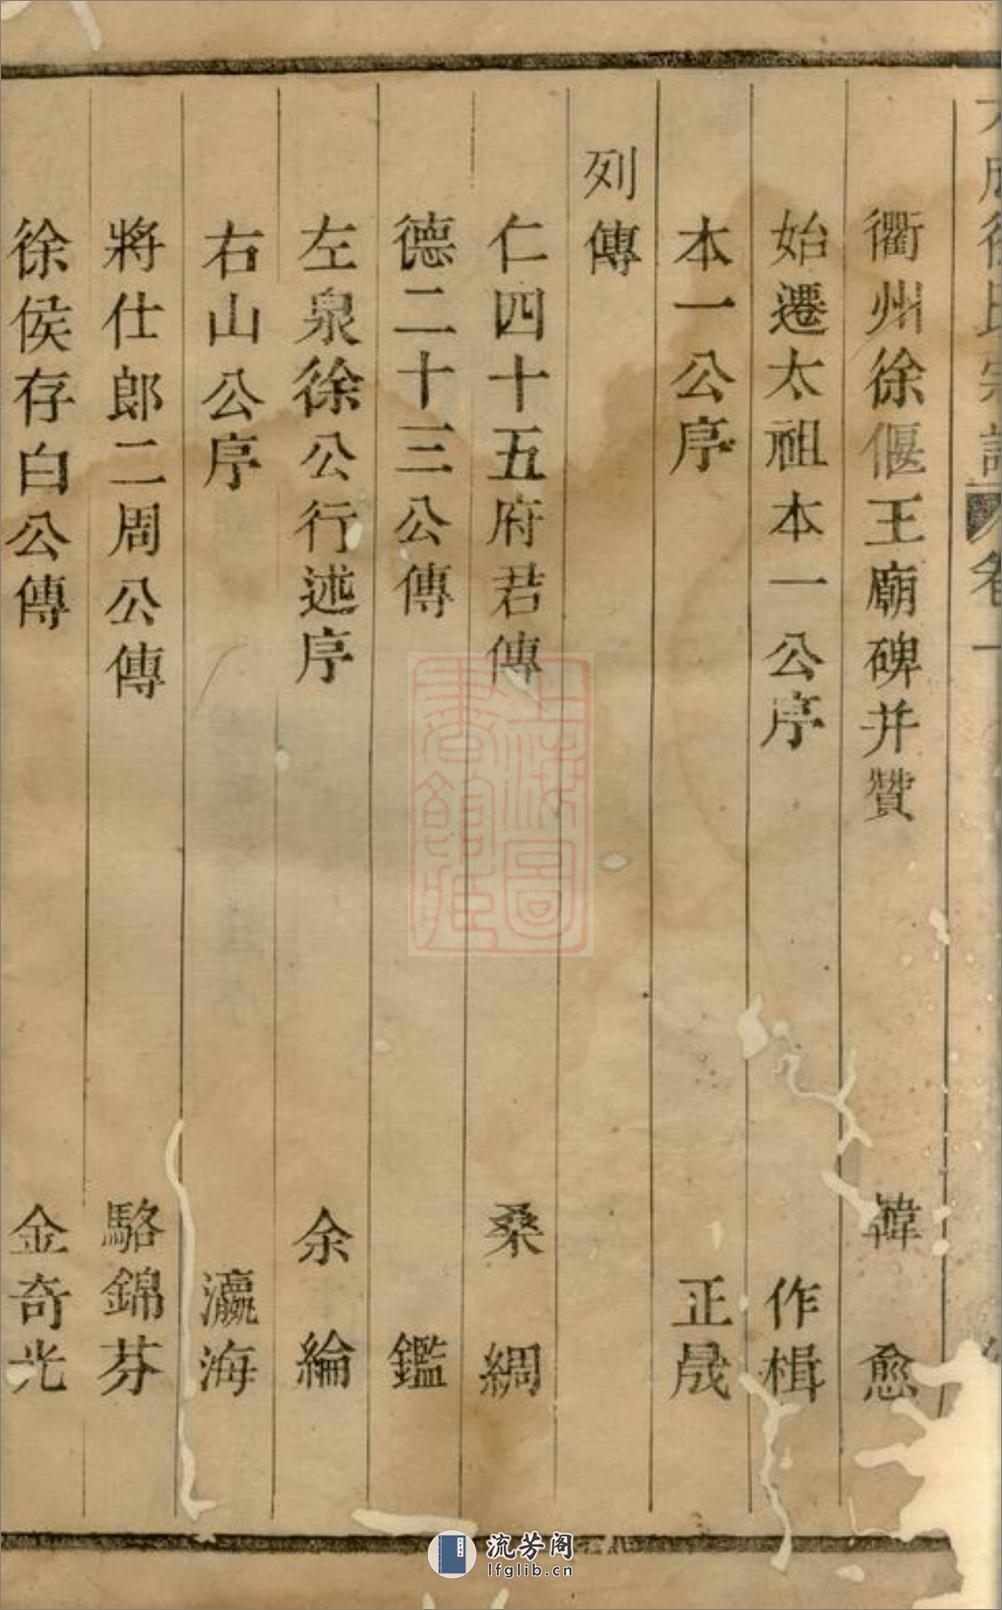 衢州徐偃王廟碑并贊 韓愈
始遷太祖本一公序 作楫
本一公序 正晟
列傳
仁四十五府君傳 桑綢
德二十三公傳 鑑
左泉徐公行述序 余綸
右山公序 瀛海
將仕郎二周公傳 駱錦芬
徐侯存白公傳 金奇光
上海圖書館藏
流芳阁
lfglib.cn